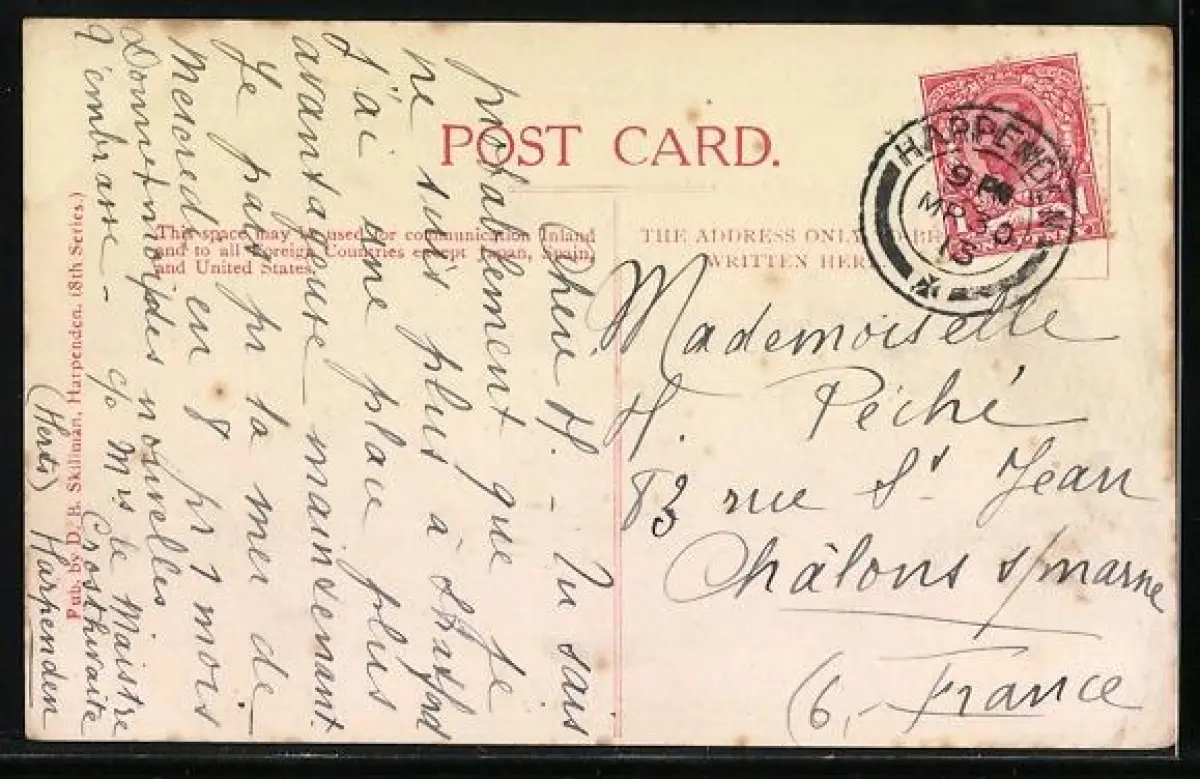 POST CARD.
This space may be used for communication Inland
and to all Foreign Countries except Japan, Spain,
and United States.
THE ADDRESS ONLY TO BE
WRITTEN HERE
HARPENDEN
9 PM
MR 30
13
Chère H. - Tu sais
probablement que je
ne suis plus à
j'ai une place plus
avantageuse maintenant.
Je pars pr la mer de
Mercredi en 8 pr 1 mois
Donne-moi des nouvelles
J'embrasse -
c/o Mrs le Maistre
Crosthwaite
Harpenden
(Herts)
Mademoiselle
H. Péché
83 rue St Jean
Châlons s/marne
(6,- France
Pub. by D. B. Skillman, Harpenden. (8th Series.)